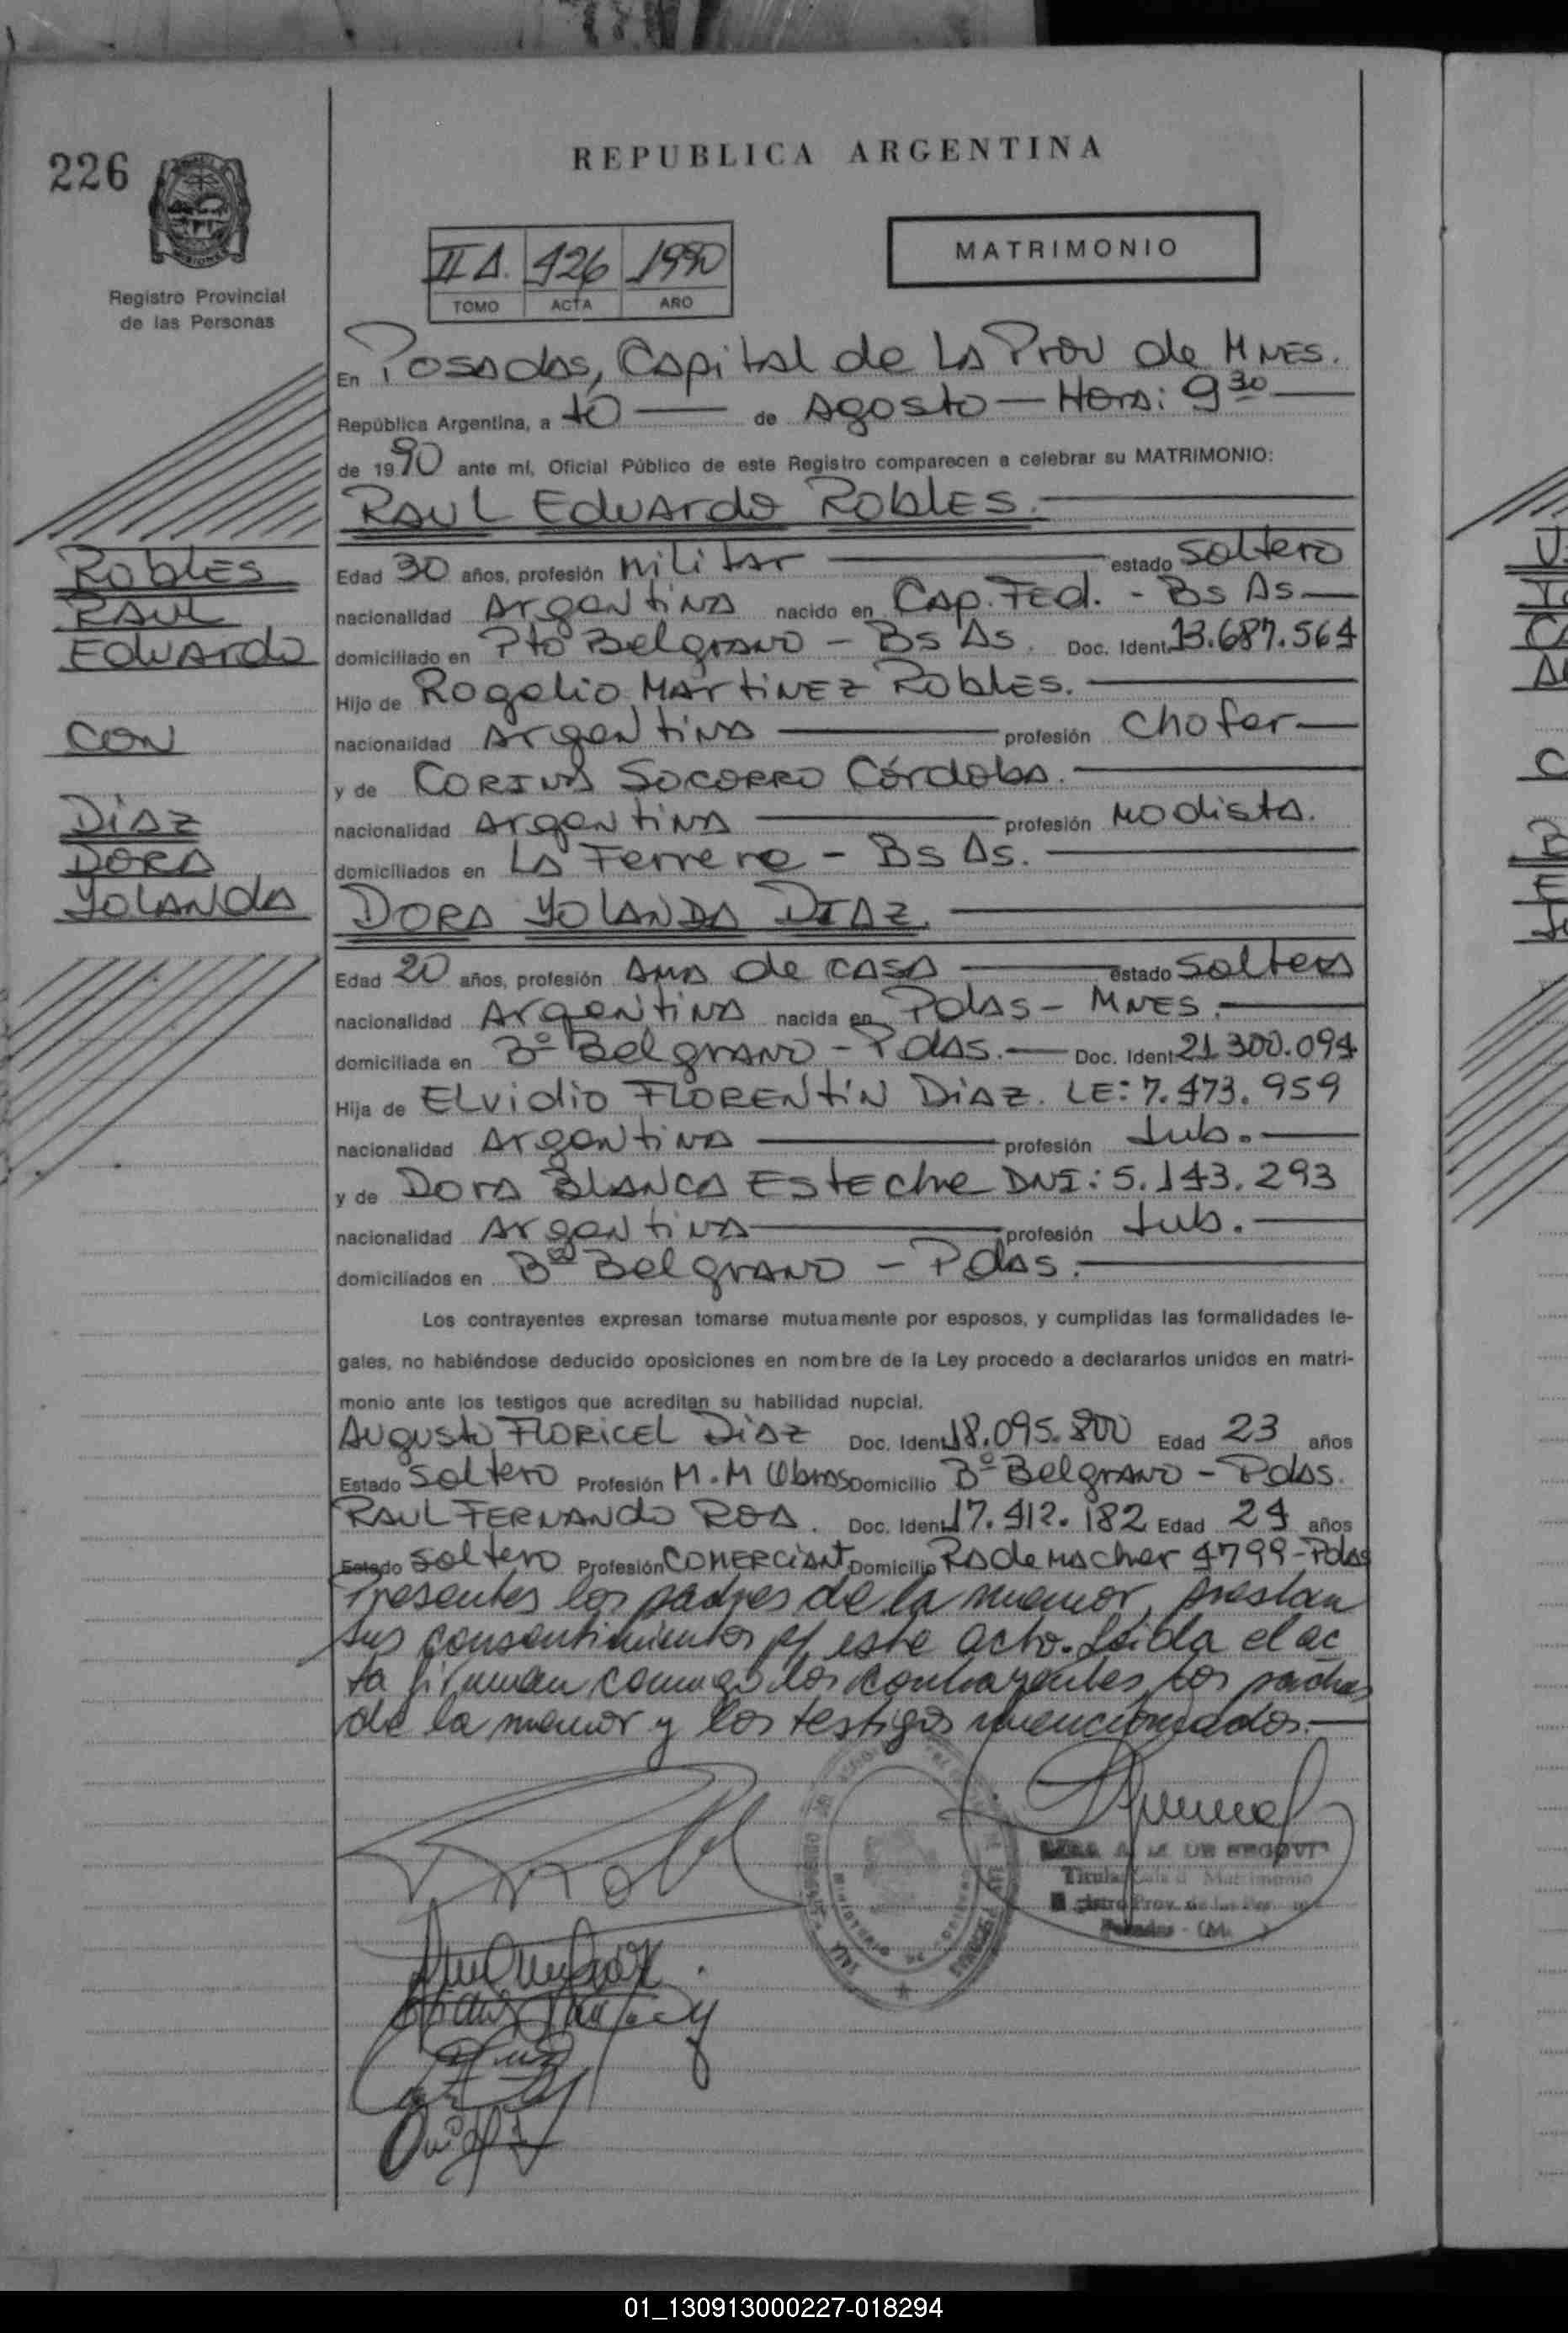 226
REPUBLICA ARGENTINA
MISIONES
Registro Provincial
de las Personas
II A. 426 1990
TOMO ACTA AÑO
MATRIMONIO
En Posadas, Capital de La Prov de Mnes.
República Argentina, a 10 — de Agosto — Hora: 9 30 —
de 19 90 ante mí, Oficial Público de este Registro comparecen a celebrar su MATRIMONIO:
RAUL Eduardo Robles.
Robles
Raul
Eduardo
con
Diaz
Dora
Yolanda
Edad 30 años, profesión Militar — estado Soltero
nacionalidad Argentina nacido en Cap. Fed. - Bs As —
domiciliado en Pto Belgrano - Bs As. Doc. Ident. 13.687.564
Hijo de Rogelio Martinez Robles. —
nacionalidad Argentina — profesión Chofer —
y de Corina Socorro Córdoba. —
nacionalidad Argentina — profesión Modista.
domiciliados en La Ferrere - Bs As. —
DORA YOLANDA DIAZ. —
Edad 20 años, profesión Ama de casa — estado Soltera
nacionalidad Argentina nacida en Pdas - Mnes. —
domiciliada en Bº Belgrano - Pdas. — Doc. Ident 21.300.094
Hija de Elvidio Florentín Diaz. LE: 7.473.959
nacionalidad Argentina — profesión Jub. —
y de Dora Blanca Esteche DNI: 5.143.293
nacionalidad Argentina — profesión Jub. —
domiciliados en Bº Belgrano - Pdas. —
Los contrayentes expresan tomarse mutuamente por esposos, y cumplidas las formalidades le-
gales, no habiéndose deducido oposiciones en nombre de la Ley procedo a declararlos unidos en matri-
monio ante los testigos que acreditan su habilidad nupcial.
Augusto Floricel Diaz Doc. Ident. 18.095.800 Edad 23 años
Estado Soltero Profesión M. M Obras Domicilio Bº Belgrano - Pdas.
Raul Fernando Roa. Doc. Ident. 17.412.182 Edad 24 años
Estado Soltero Profesión Comerciant Domicilio Rademacher 4799 - Pdas
Presentes los padres de la menor, prestan
sus consentimientos p/ este acto. Leida el ac
ta firman conmigo los contrayentes, los padres
de la menor y los testigos mencionados. —
DE SEGOVI
Titular Sala d Matrimonio
Prov. de las Per
Posadas - (M )
01_130913000227-018294